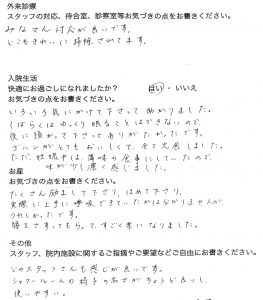 外来診療
スタッフの対応、待合室、診察室等お気づきの点をお書きください。
みなさん対応が良いです。
どこもきれいに掃除されてます。
入院生活
快適にお過ごしになれましたか？ はい ・ いいえ
お気づきの点をお書きください。
いろいろ気にかけて下さって助かりました。
しばらくはゆっくり寝ることはできないので、
夜に預かって下さってありがたかったです。
ゴハンがとてもおいしくて、全て完食しました。
ただ、妊娠中は、薄味の食事にしていたので、
味が少し濃く感じました。
お産
お気づきの点をお書きください。
たくさん励まして下さり、ほめて下さり、
実際に上手に呼吸できていたかはわかりませんが、
うれしかったです。
腰をさすってもらって、すごく楽になりました。
その他
スタッフ、院内施設に関するご指摘やご要望などご自由にお書きください。
どのスタッフさんも感じが良いです。
シャワールームの椅子の高さがちょうど良いし、
使いやすい。